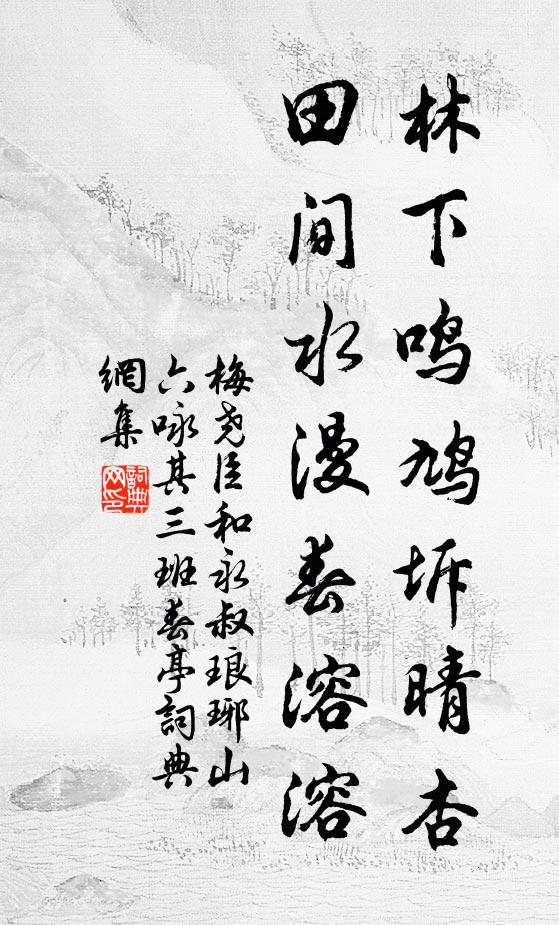 林下鸣鸠坼晴杏
田间水漫春溶溶
梅尧臣和永叔琅琊山
六咏其三班春亭詞典
網集
詞典網印